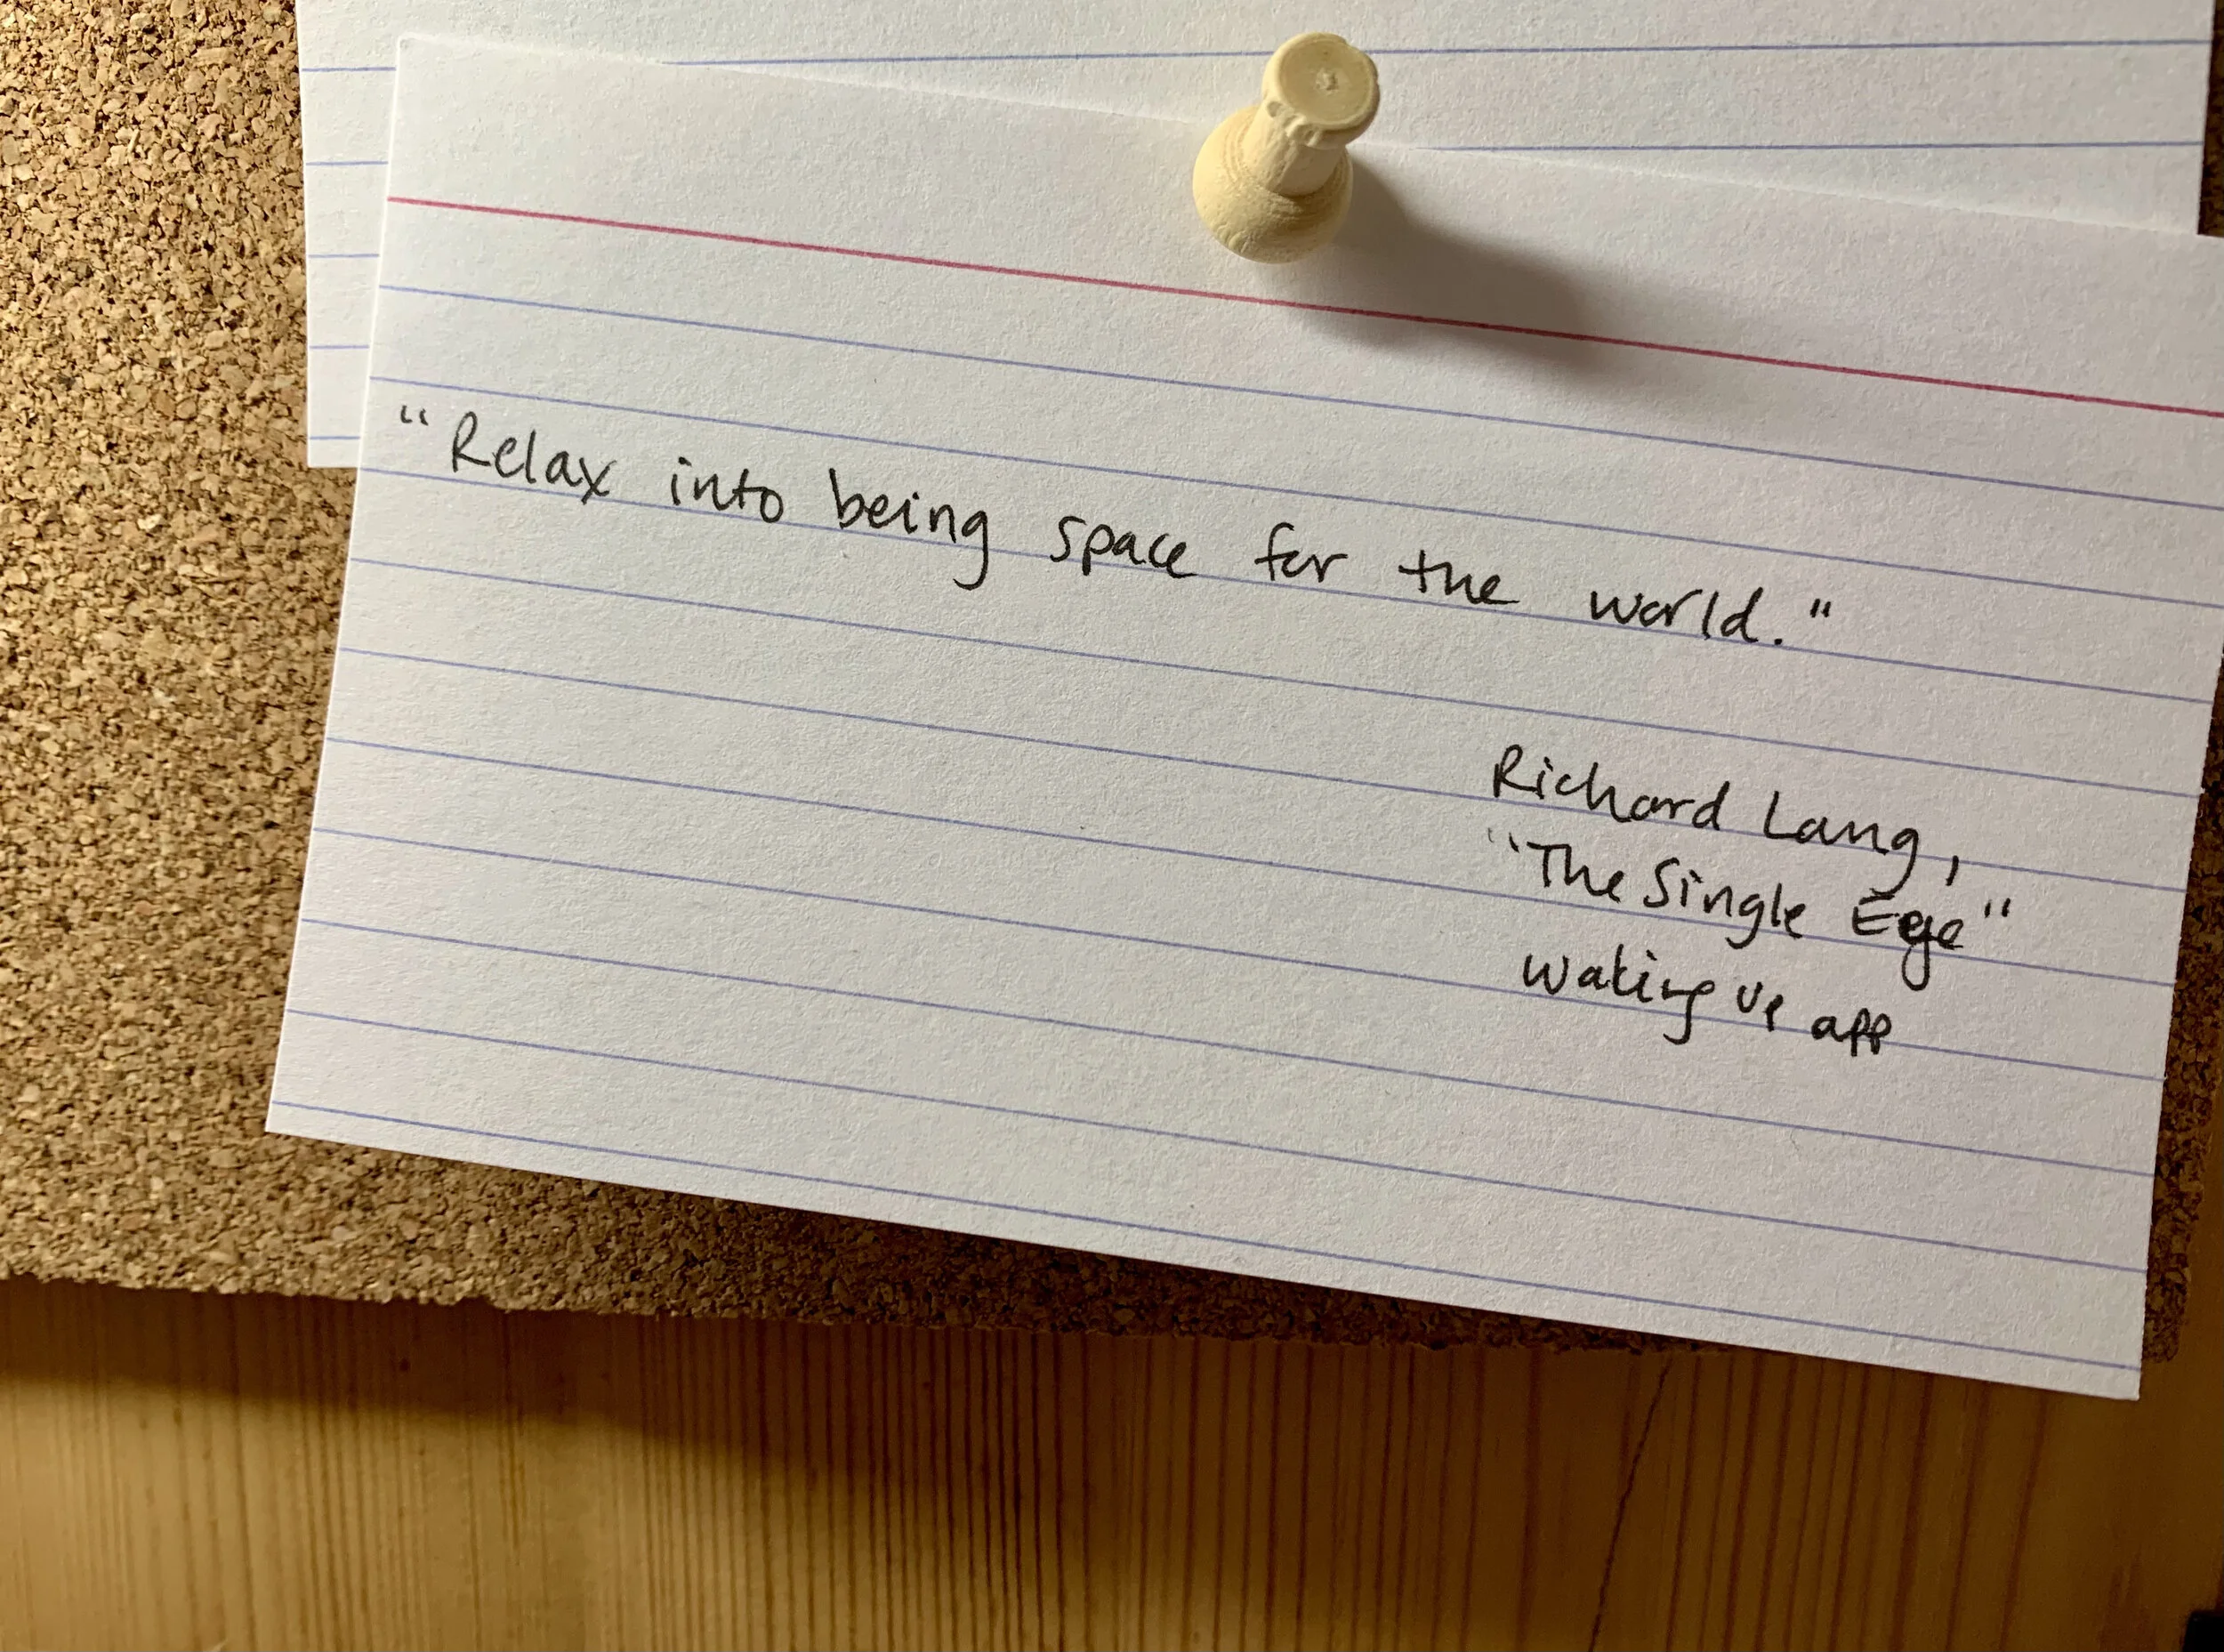 "Relax into being space for the world."
Richard Lang,
"The Single Eye"
Waking up app